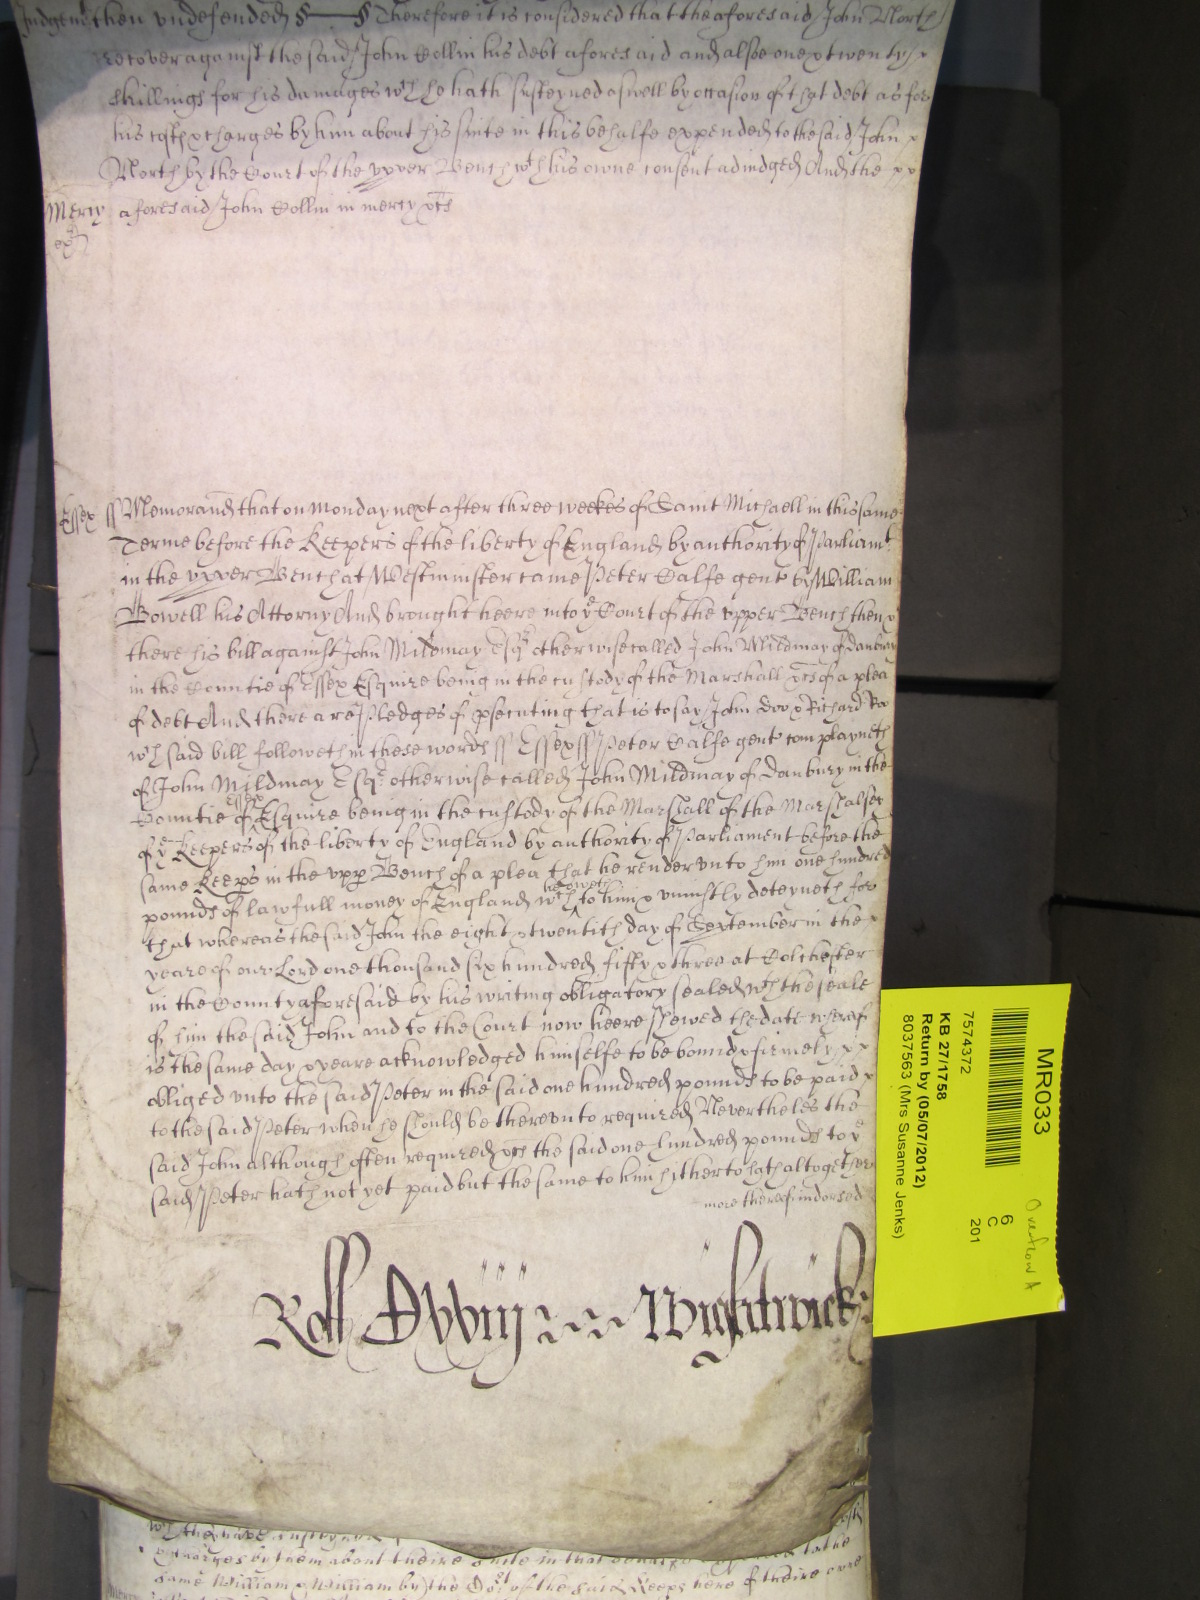 Judgemt then undefended § § Therefore it is considered that the aforesaid John North
recover against the said John Collin his debt aforesaid and alsoe one & twenty x
shillings for his damages wch he hath susteyned aswell by occasion of that debt as for
his costs & charges by him about his suite in this behalfe expended to the said John x
North by the Court of the upper Bench wth his owne consent adiudged And the x x
Mercy aforesaid John Collin in mercy &c
Essex ss Memorand that on Monday next after three weekes of Saint Michaell in this same
Terme before the Keepers of the liberty of England by authority of Parliamt
in the upper Bench at Westminster came Peter Calfe gent by William
Bowell his Attorny And brought heere into ye Court of the upper Bench then x
there his bill against John Mildmay Esqr otherwise called John Mildmay of Danbury
in the Countie of Essex Esquire being in the custody of the Marshall &c of a plea
of debt And there are Pledges of psecuting that is to say John Doo & Richard Roo
wch said bill followeth in these words ss Essex ss Peter Calfe gent complayneth
of John Mildmay Esqr otherwise called John Mildmay of Danbury in the
Countie of Essex Esquire being in the custody of the Marshall of the Marshalsey
of ye Keepers of the liberty of England by authority of Parliament before the
same Keeps in the upp Bench of a plea that he render unto him one hundred
pounds of lawfull money of England wch he oweth to him & uniustly deteyneth for
that whereas the said John the eight & twentith day of September in the x
yeare of our Lord one thousand six hundred fifty & three at Colchester
in the County aforesaid by his writing obligatory sealed wth the seale
of him the said John and to the Court now heere shewed the date whereof
is the same day & yeare acknowledged himselfe to be bound & firmely x x
obliged unto the said Peter in the said one hundred pounds to be paid x
to the said Peter when he should be thereunto required Nevertheles the
said John although often required &c the said one hundred pounds to ye
said Peter hath not yet paid but the same to him hitherto hath altogether
more thereof indorsed
Roll DVViij Wightwick:
MR033
7574372
KB 27/1758
Return by (05/07/2012)
8037563 (Mrs Susanne Jenks)
6
C
201
Overflow A
charges by them about theire suite in that behalfe expended to the
same William & William by the Cort of the said Keeps here of theire owne